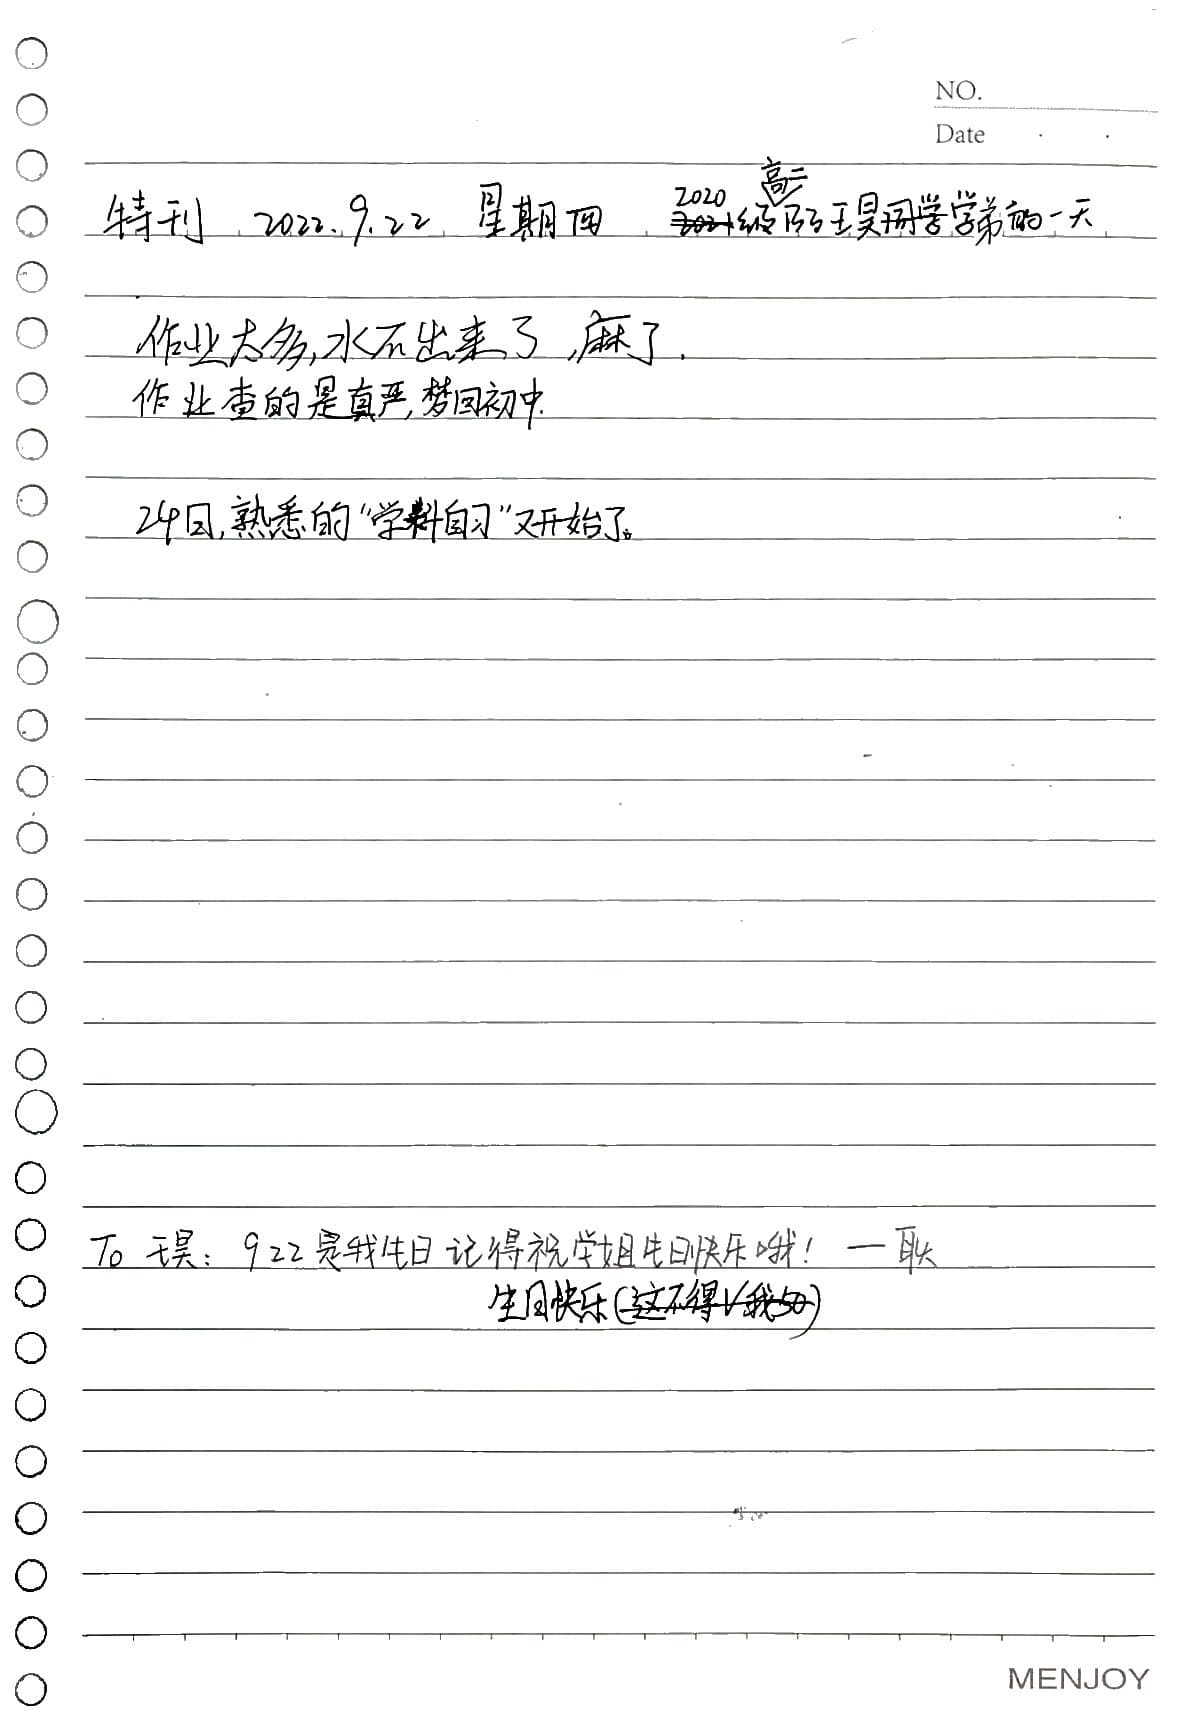 NO.
Date
特刊 2022.9.22 星期四 2020级高二 王昊学弟的一天
作业太多,水不出来了,麻了.
作业查的是真严,梦回初中.
24日,熟悉的“学科自习”又开始了。
To 王昊: 922是我生日记得祝学姐生日快乐哦! —耿
生日快乐(这不得V我50)
MENJOY